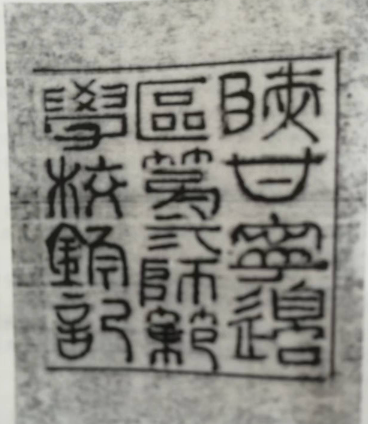 陝甘寧邊
區第弍師範
學校鈐記